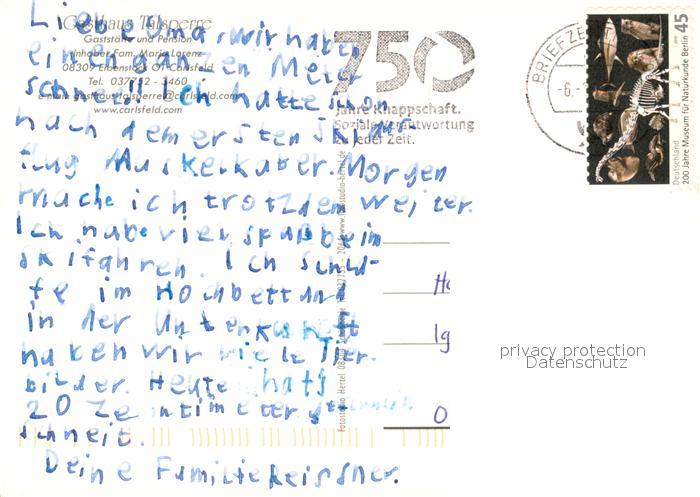 Liebe Oma, wir haben
einen ganzen Meter
schnee!! Ich hatte schon
nach dem ersten Skiaus
flug Muskelkater. Morgen
mache ich trotzdem weiter.
Ich habe viel spaß beim
skifahren. Ich schla-
fe im Hochbett und
in der Unterkunft
haben wir viele Tier-
bilder. Heute hats
20 Zentimeter
schneit.
Deine Familie Reissner.
Gasthaus Talsperre
Gaststätte und Pension
Inhaber Fam. Mario Lorenz
08309 Eibenstock OT Carlsfeld
Tel. 037752 - 3460
e mail: gasthaus.talsperre@carlsfeld.com
www.carlsfeld.com
750
Jahre Knappschaft.
Soziale Verantwortung
zu jeder Zeit.
BRIEFZE
-6.
45
Deutschland
200 Jahre Museum für Naturkunde Berlin
Fotostudio Hertel 08309
Ho
Ig
O
privacy protection
Datenschutz